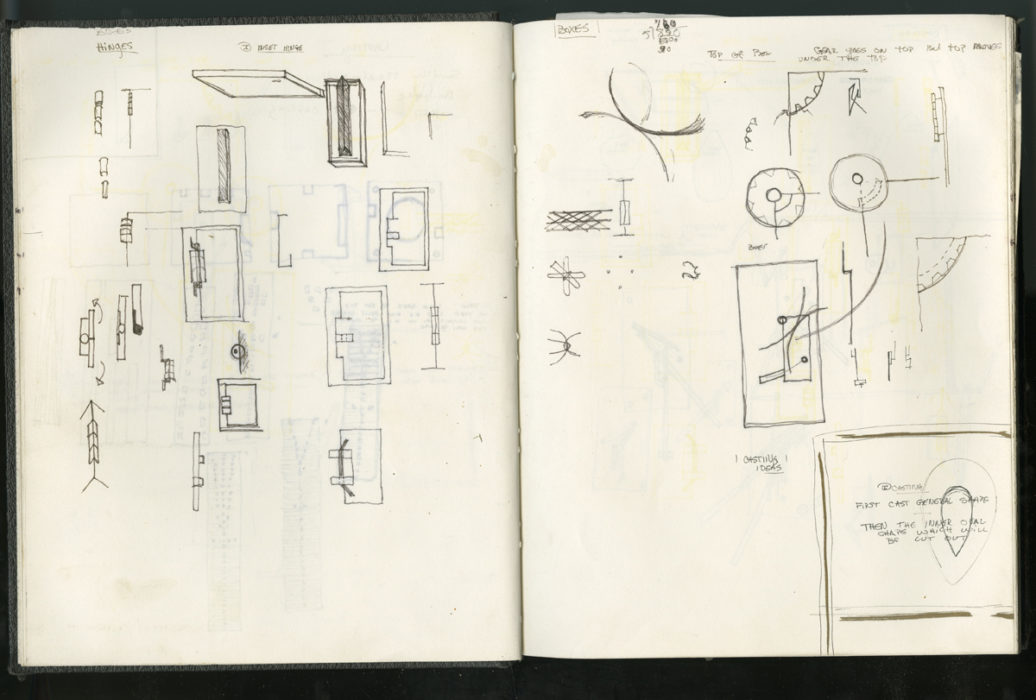 BOXES
HINGES
② INSET HINGE
BOXES
TOP OF BOX
GEAR GOES ON TOP
UNDER THE TOP
1 CASTING 1
IDEAS
② CASTING
FIRST CAST GENERAL SHAPE
THEN THE INNER OVAL
SHAPE WHICH WILL
BE CUT OUT